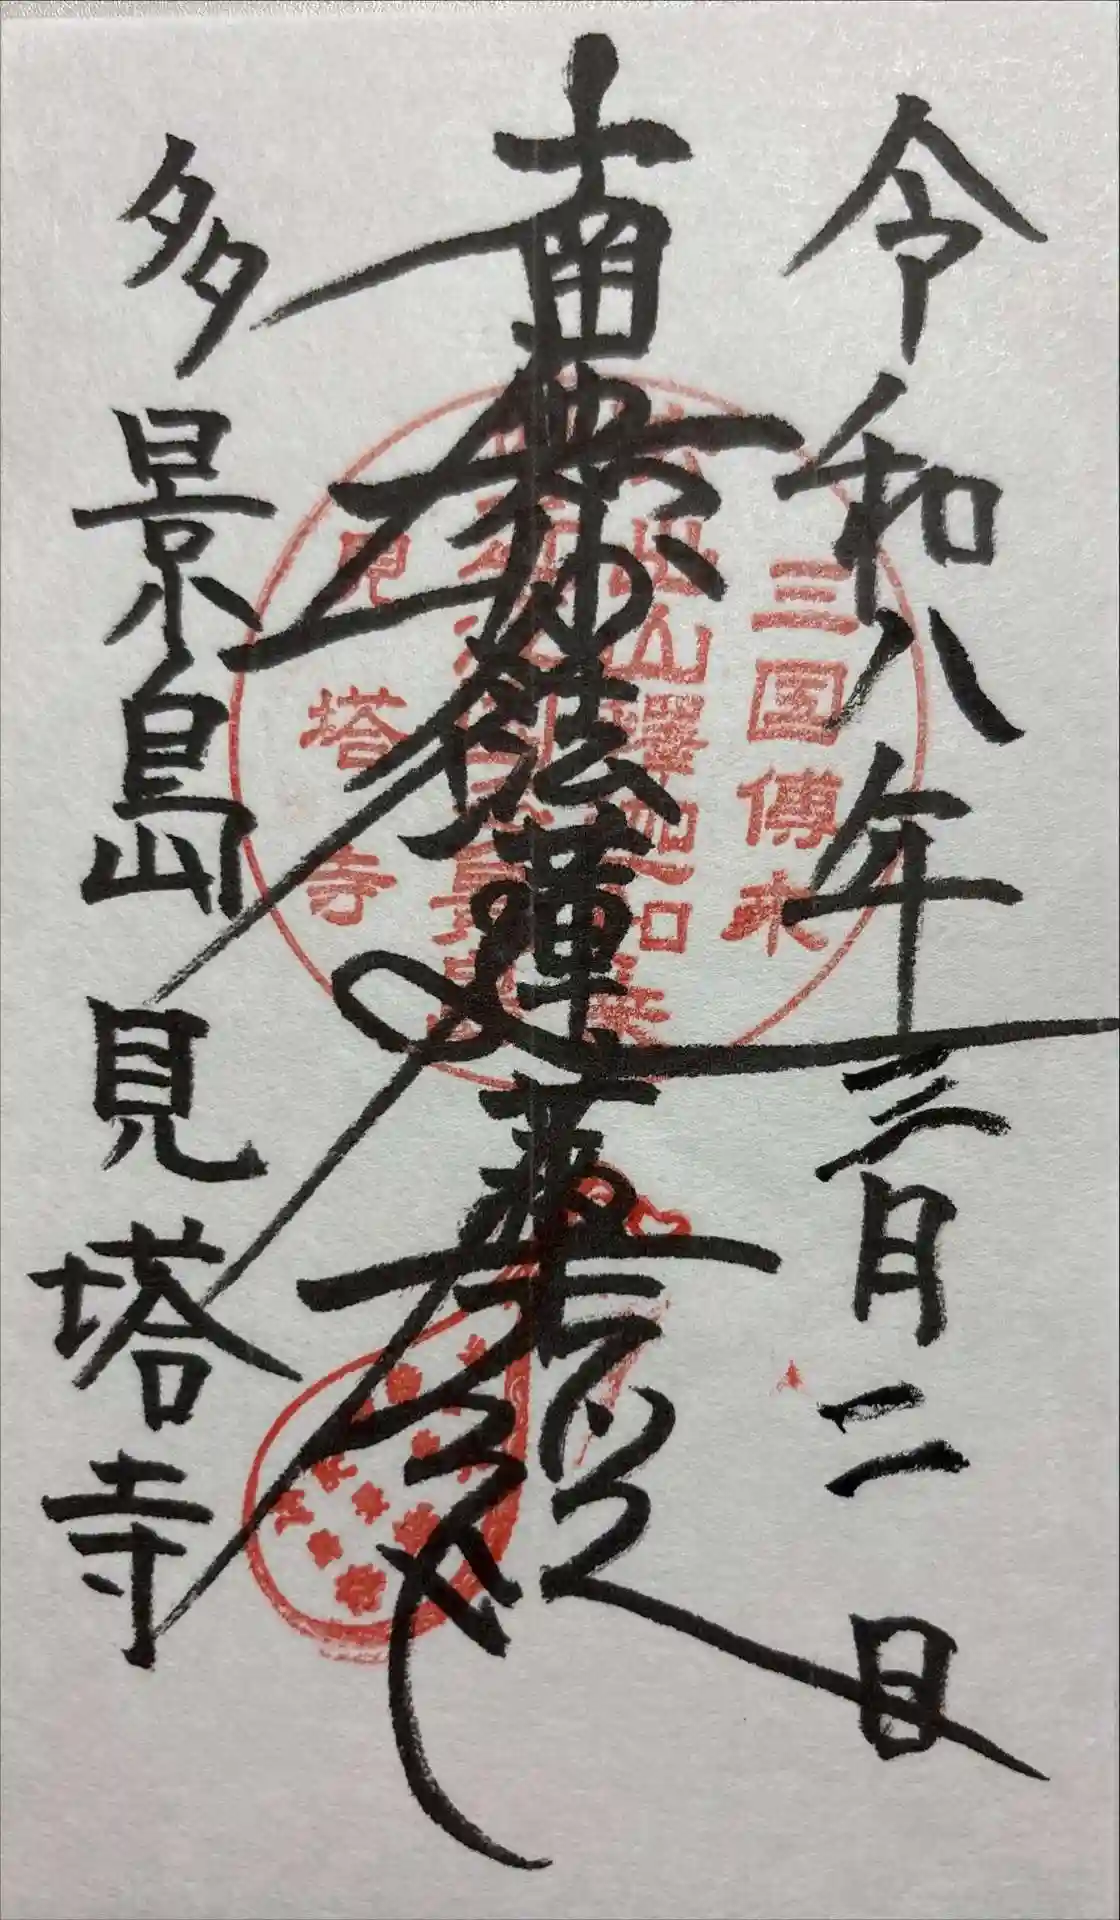 令和八年三月二日
南無妙法蓮華経
多景島見塔寺
三国傳来
見塔寺